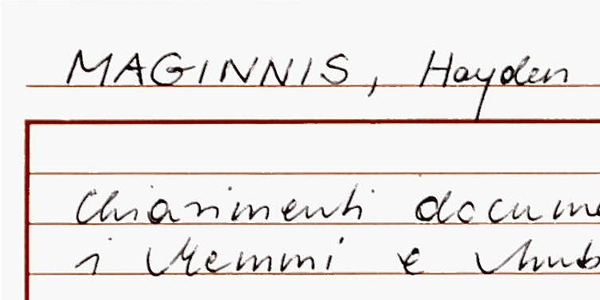 MAGINNIS, Hayden
Chiarimenti docume
i Memmi e